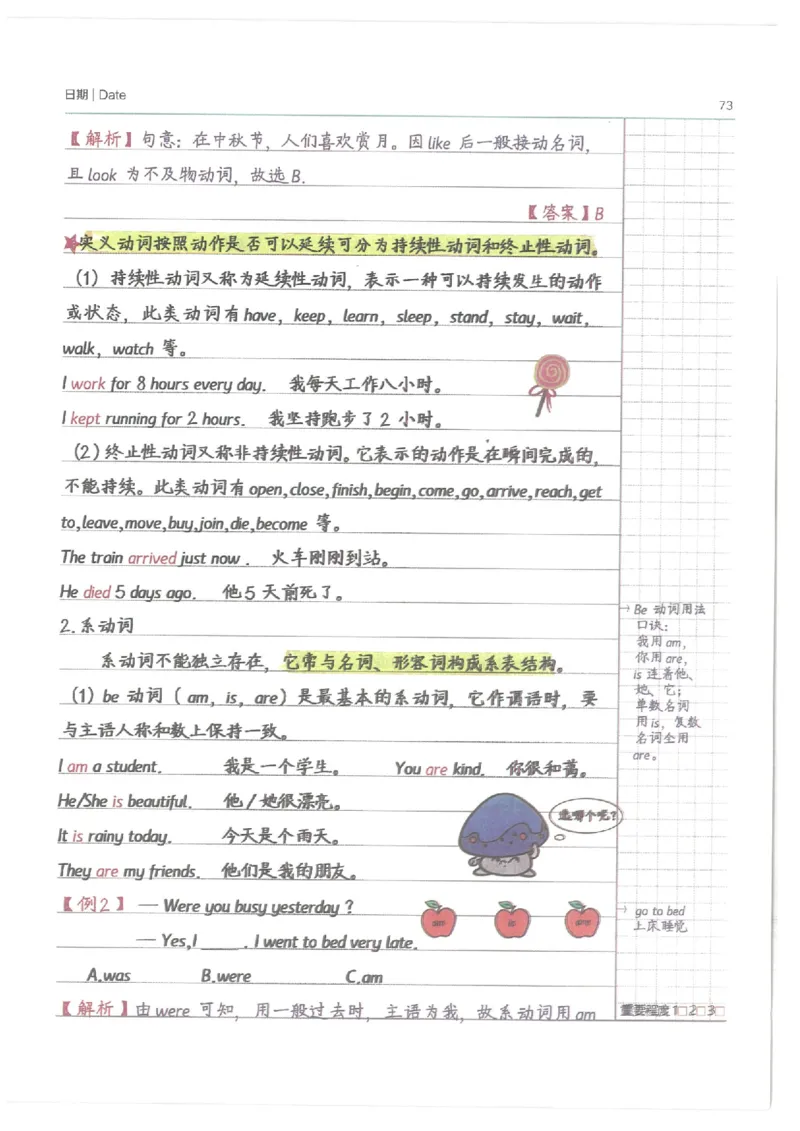 日期 | Date
73
【解析】句意：在中秋节，人们喜欢赏月。因 like 后一般接动名词，
且 look 为不及物动词，故选 B.
【答案】B
实义动词按照动作是否可以延续可分为持续性动词和终止性动词。
（1）持续性动词又称为延续性动词，表示一种可以持续发生的动作
或状态，此类动词有 have, keep, learn, sleep, stand, stay, wait,
walk, watch 等。
I work for 8 hours every day. 我每天工作八小时。
I kept running for 2 hours. 我坚持跑步了 2 小时。
（2）终止性动词又称非持续性动词。它表示的动作是在瞬间完成的，
不能持续。此类动词有 open,close,finish,begin,come,go,arrive,reach,get
to,leave,move,buy,join,die,become 等。
The train arrived just now . 火车刚刚到站。
He died 5 days ago. 他 5 天前死了。
2. 系动词
系动词不能独立存在，它常与名词、形容词构成系表结构。
（1）be 动词（ am, is, are）是最基本的系动词，它作谓语时，要
与主语人称和数上保持一致。
I am a student. 我是一个学生。 You are kind. 你很和蔼。
He/She is beautiful. 他 / 她很漂亮。
It is rainy today. 今天是个雨天。
They are my friends. 他们是我的朋友。
选哪个呢？
【例2】 — Were you busy yesterday ?
— Yes,I ____ . I went to bed very late.
A.was B.were C.am
【解析】由 were 可知，用一般过去时，主语为我，故系动词用 am
→ Be 动词用法
口诀：
我用 am，
你用 are，
is 连着他、
她、它；
单数名词
用 is，复数
名词全用
are。
→ go to bed
上床睡觉
重要程度 1□ 2□ 3□